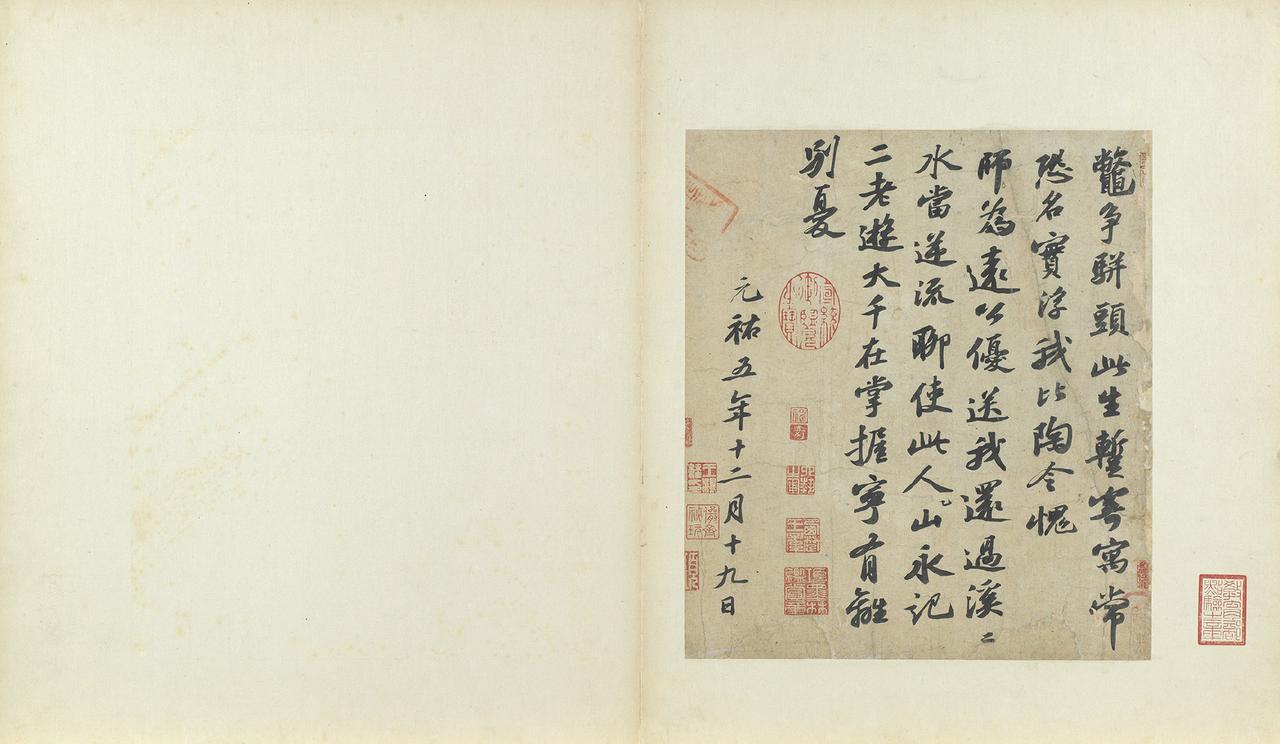 鼈争駢頭此生蹔寄寓常
恐名實浮我比陶令愧
師為遠公優送我還過溪二
水當逆流聊使此人山永記
二老遊大千在掌握寧有離
別憂
元祐五年十二月十九日